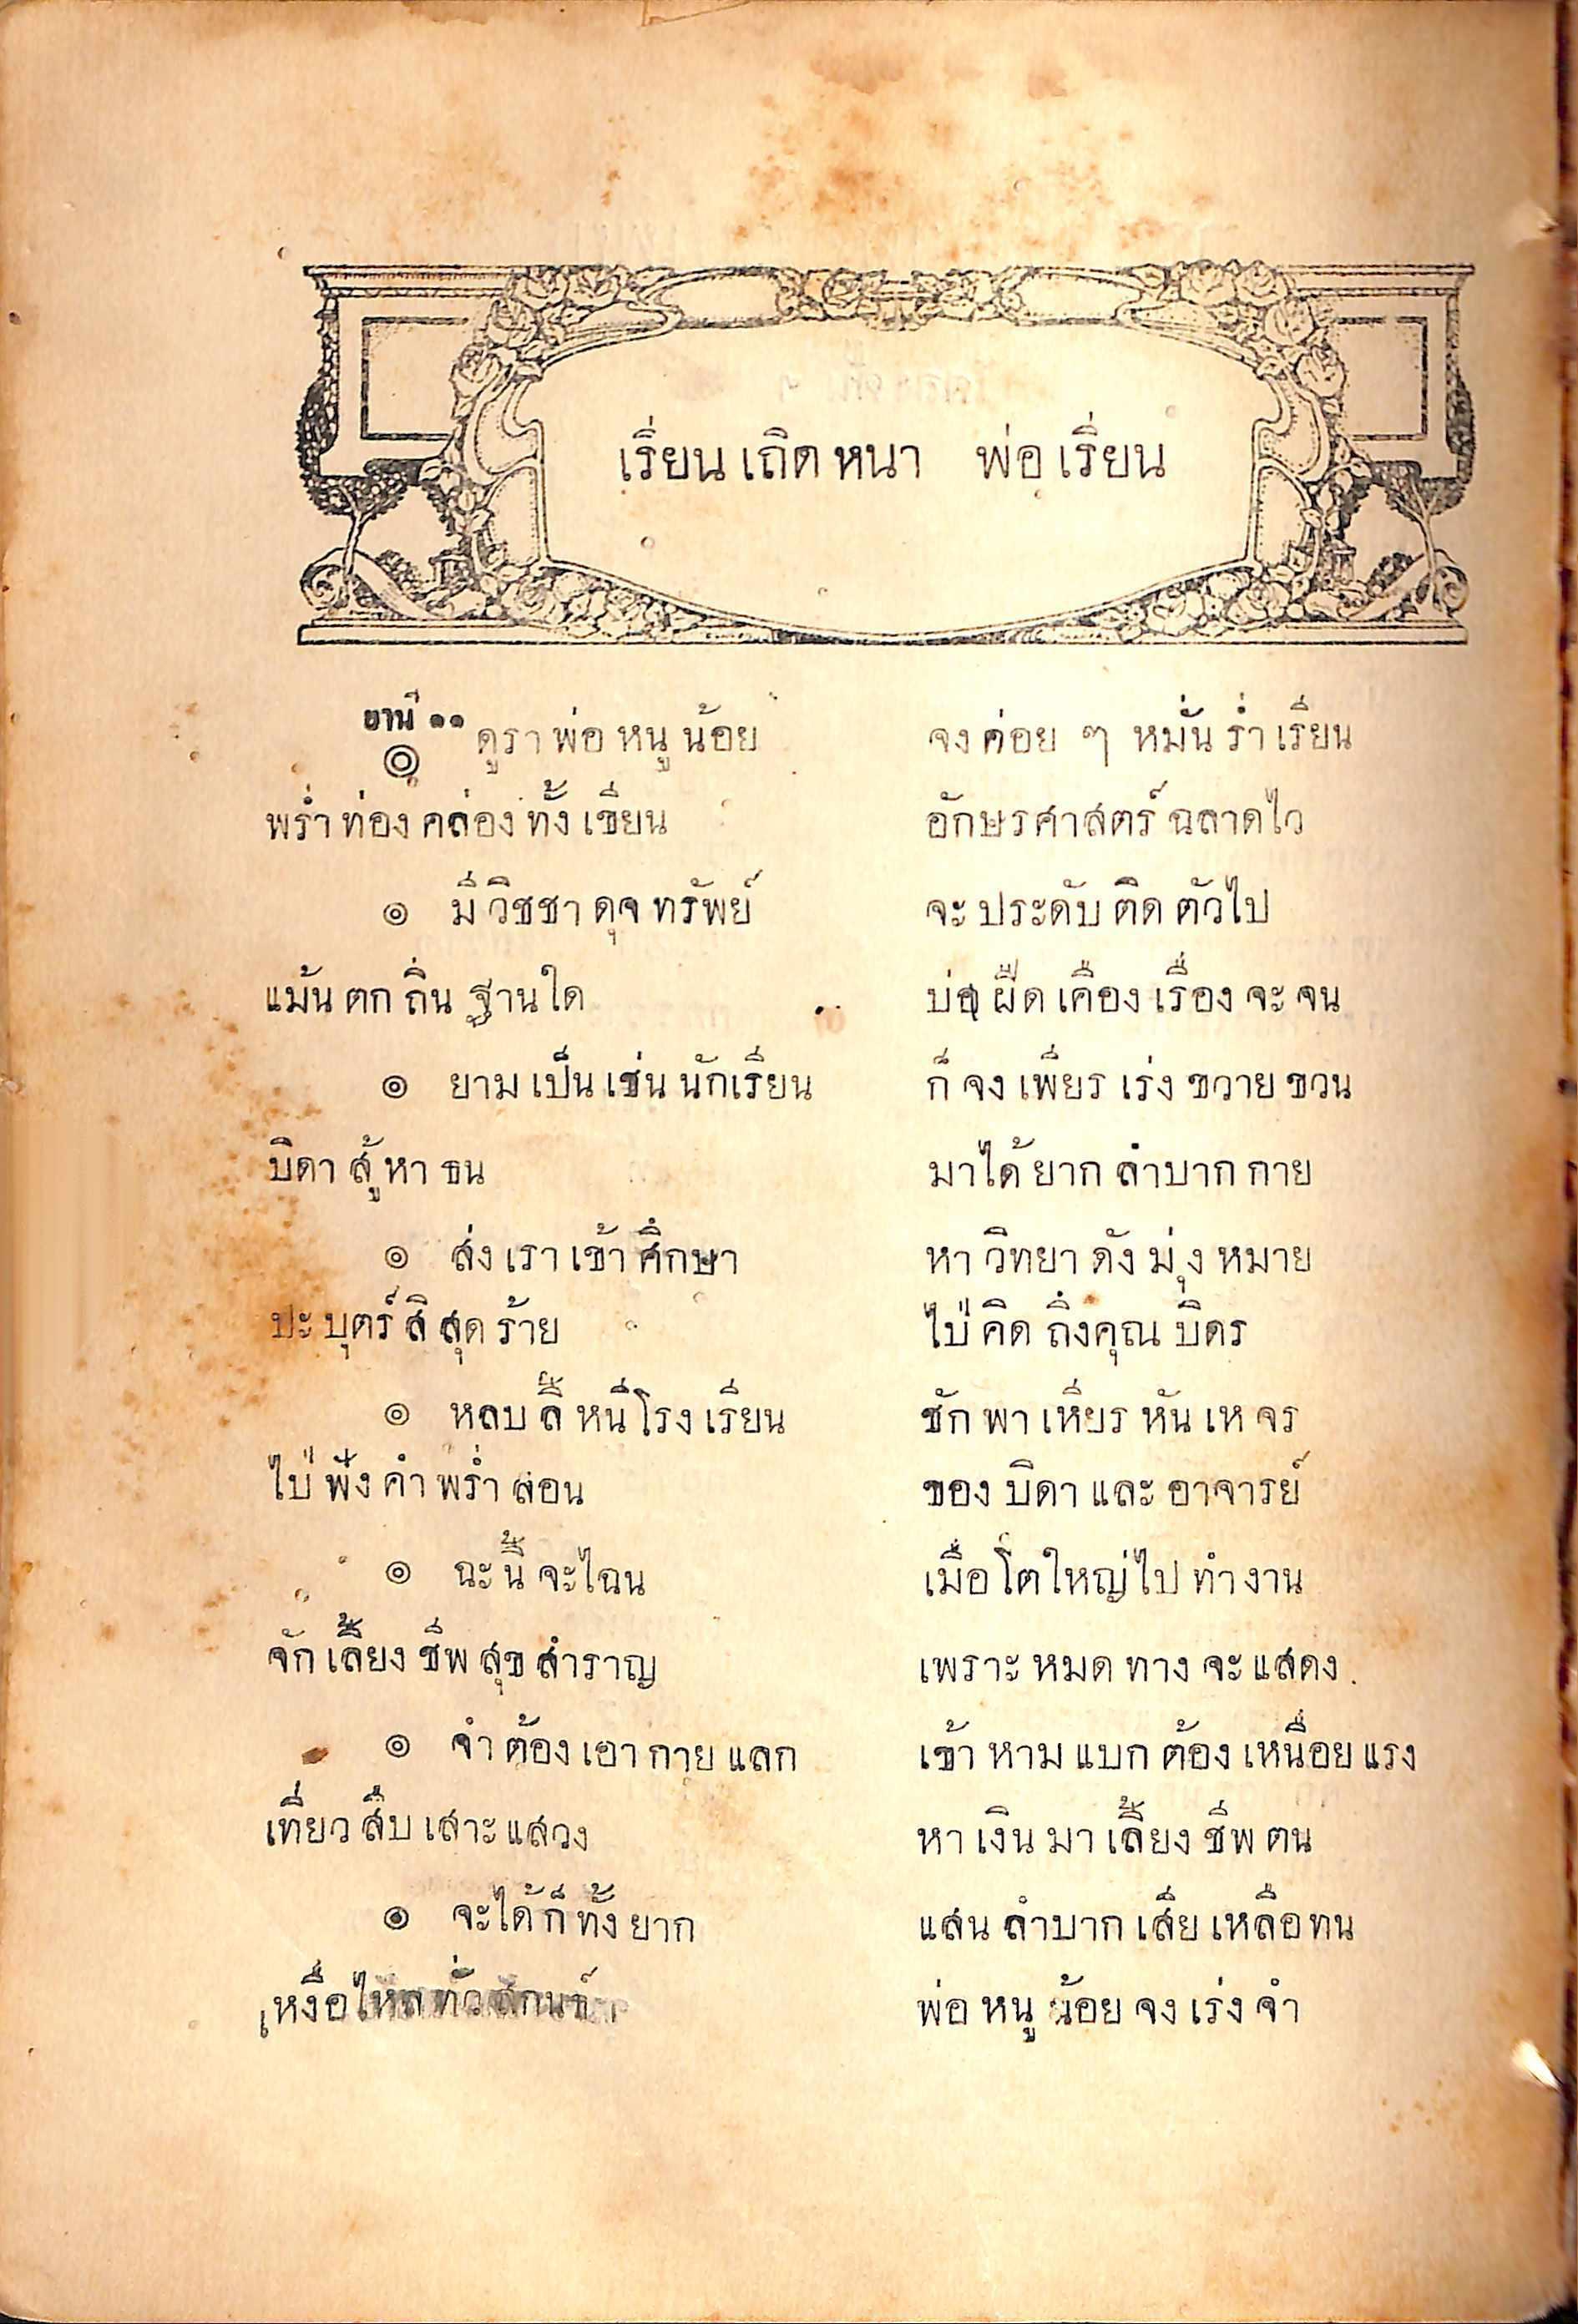 เรียนเถิดหนา พ่อเรียน
ยานี ๑๑
๏ ดูราพ่อหนูน้อย จงค่อย ๆ หมั่นร่ำเรียน
พร่ำท่องคล่องทั้งเขียน อักษรศาสตร์ฉลาดไว
๏ มีวิชชาดุจทรัพย์ จะประดับติดตัวไป
แม้นตกถิ่นฐานใด บ่อฝืดเคืองเรื่องจะจน
๏ ยามเป็นเช่นนักเรียน ก็จงเพียรเร่งขวายขวน
บิดาสู้หาธน มาได้ยากลำบากกาย
๏ ส่งเราเข้าศึกษา หาวิทยาดังมุ่งหมาย
ปะบุตร์สิสุดร้าย ไป่คิดถึงคุณบิดร
๏ หลบลี้หนีโรงเรียน ชักพาเหียรหันเหจร
ไป่ฟังคำพร่ำสอน ของบิดาและอาจารย์
๏ ฉะนี้จะไฉน เมื่อโตใหญ่ไปทำงาน
จักเลี้ยงชีพสุขสำราญ เพราะหมดทางจะแสดง
๏ จำต้องเอากายแลก เข้าหามแบกต้องเหนื่อยแรง
เที่ยวสืบเสาะแสวง หาเงินมาเลี้ยงชีพตน
๏ จะได้ก็ทั้งยาก แสนลำบากเสียเหลือทน
เหงื่อไหลทั่วสกนธ์ พ่อหนูน้อยจงเร่งจำ